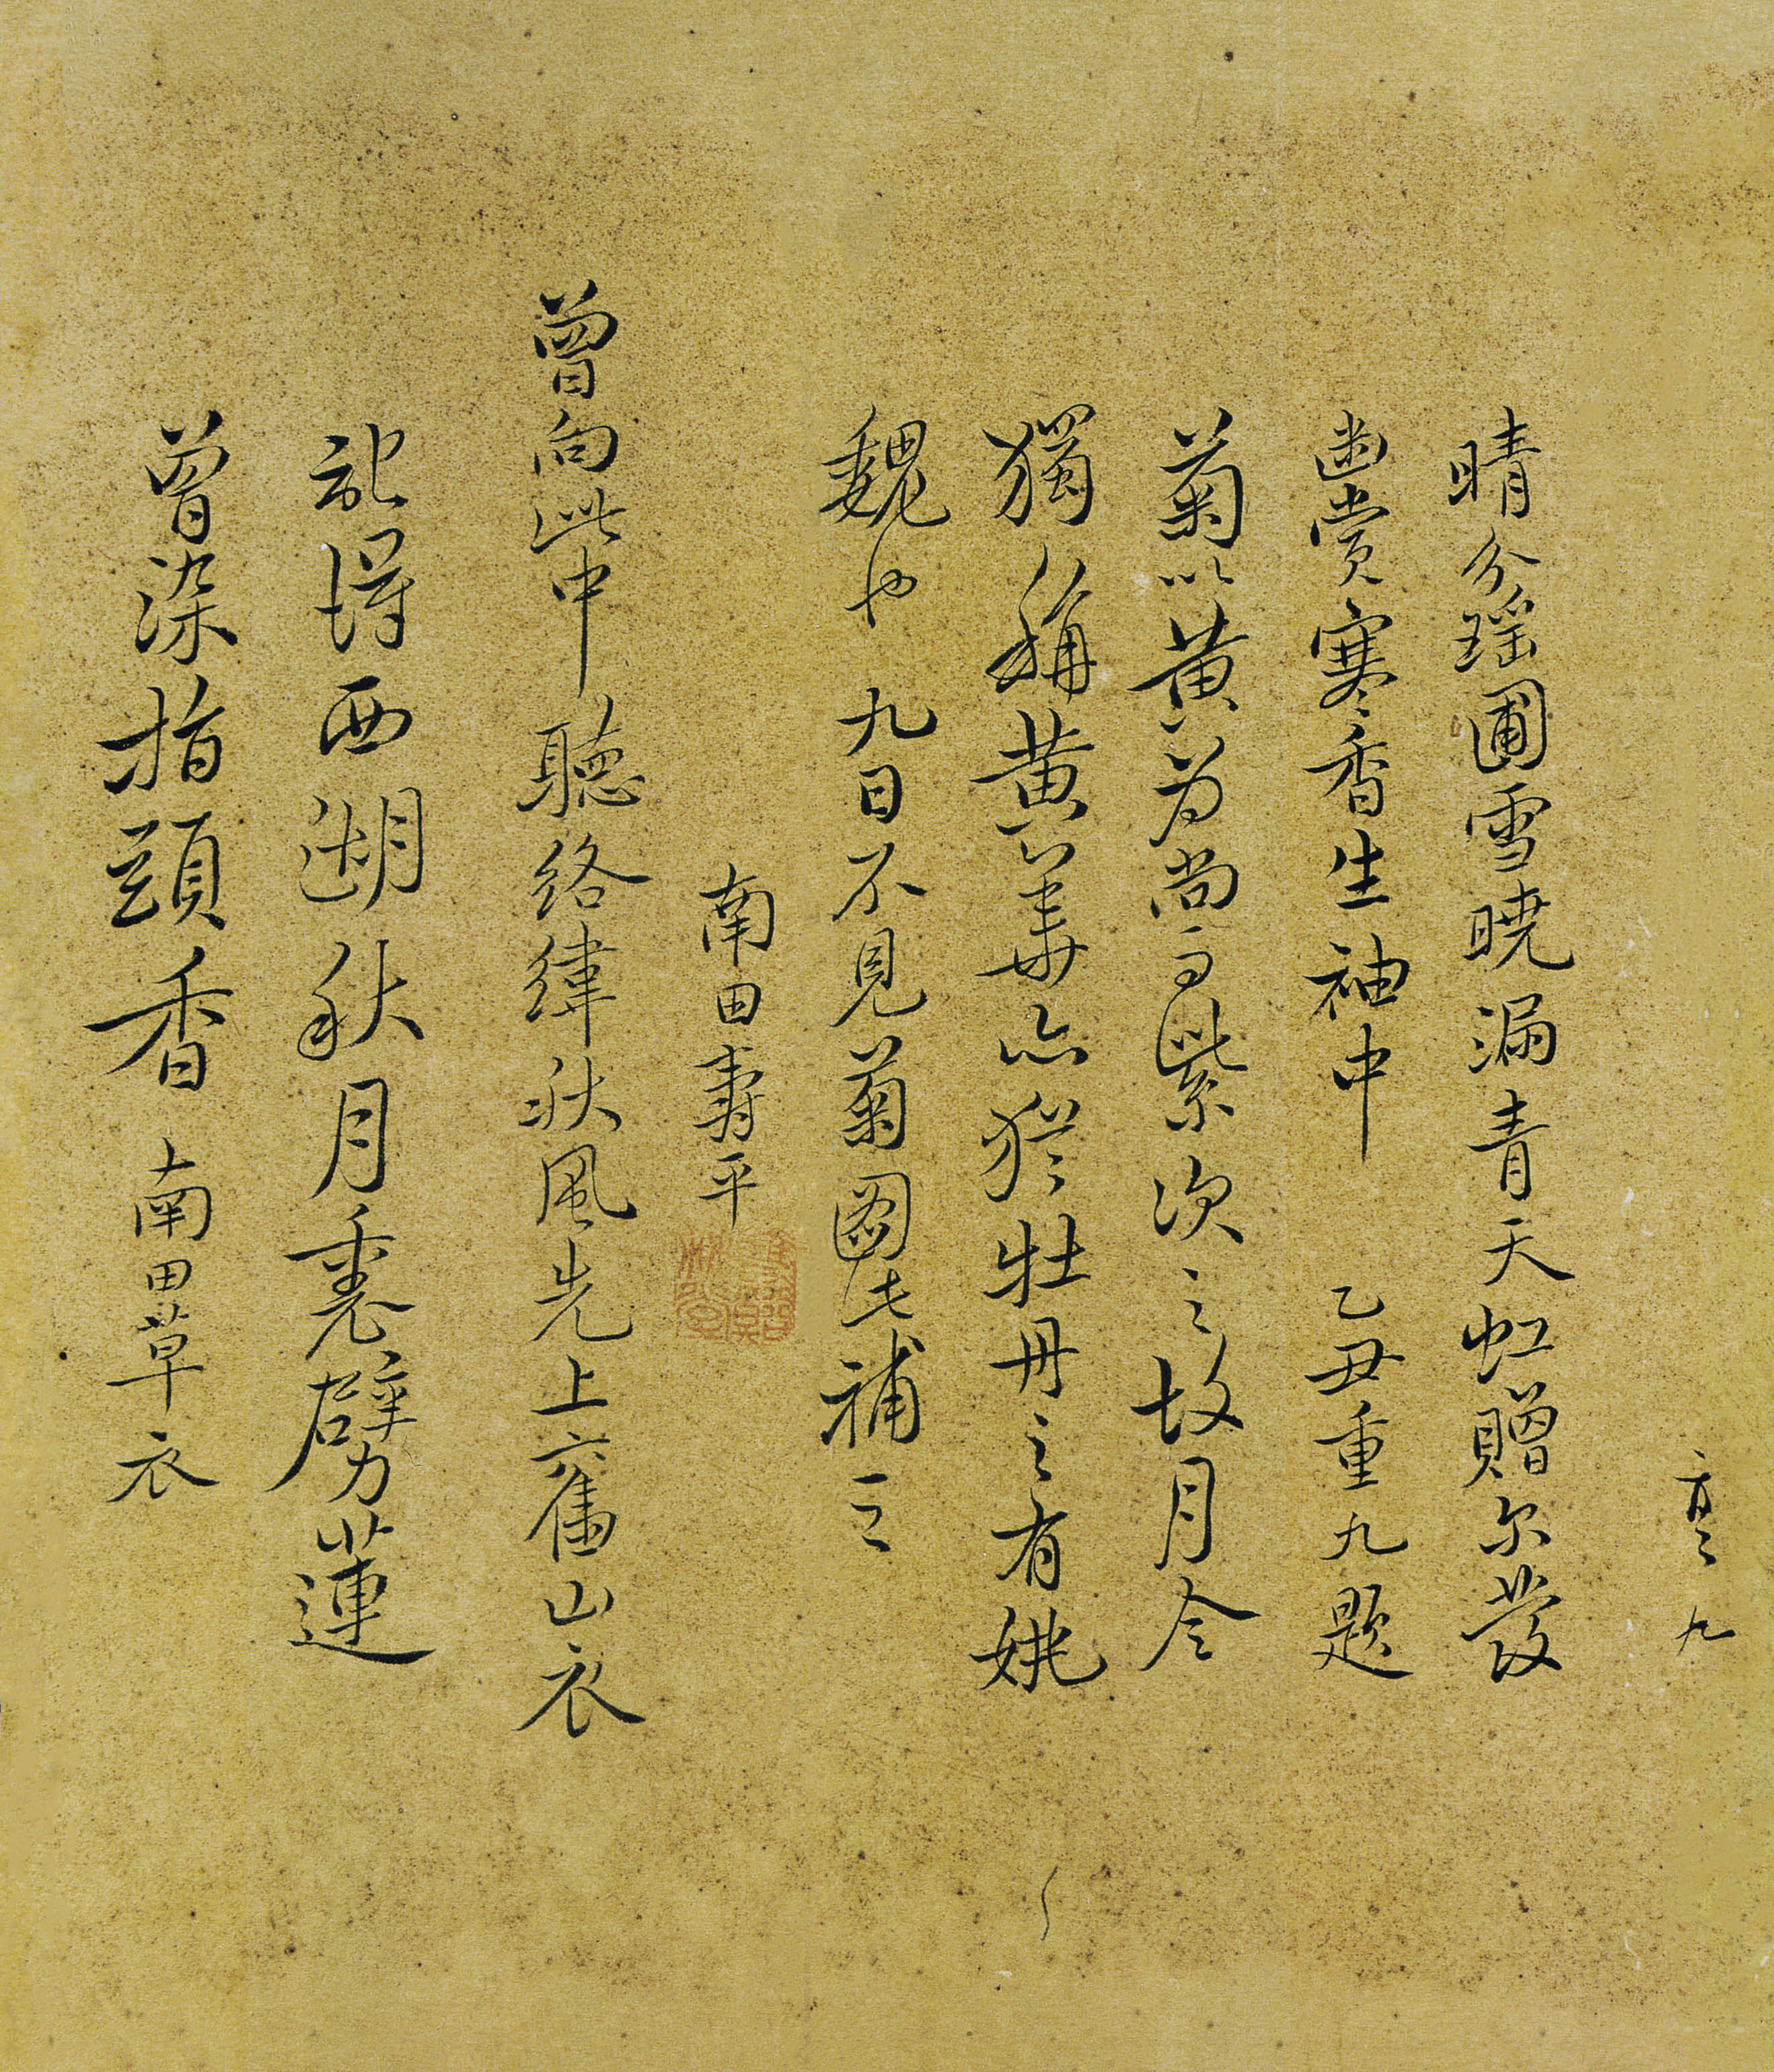 九
晴分瑶圃雪曉漏青天虹贈尔發
幽賞寒香生袖中 乙丑重九題
菊以黄為尚而紫次之故月令
獨稱黄華亦猶牡丹之有姚
魏也 九日不見菊圖此補之
南田壽平
曾向此中聽絡緯秋風先上舊山衣
記得西湖秋月裏劈蓮
曾染指頭香 南田草衣